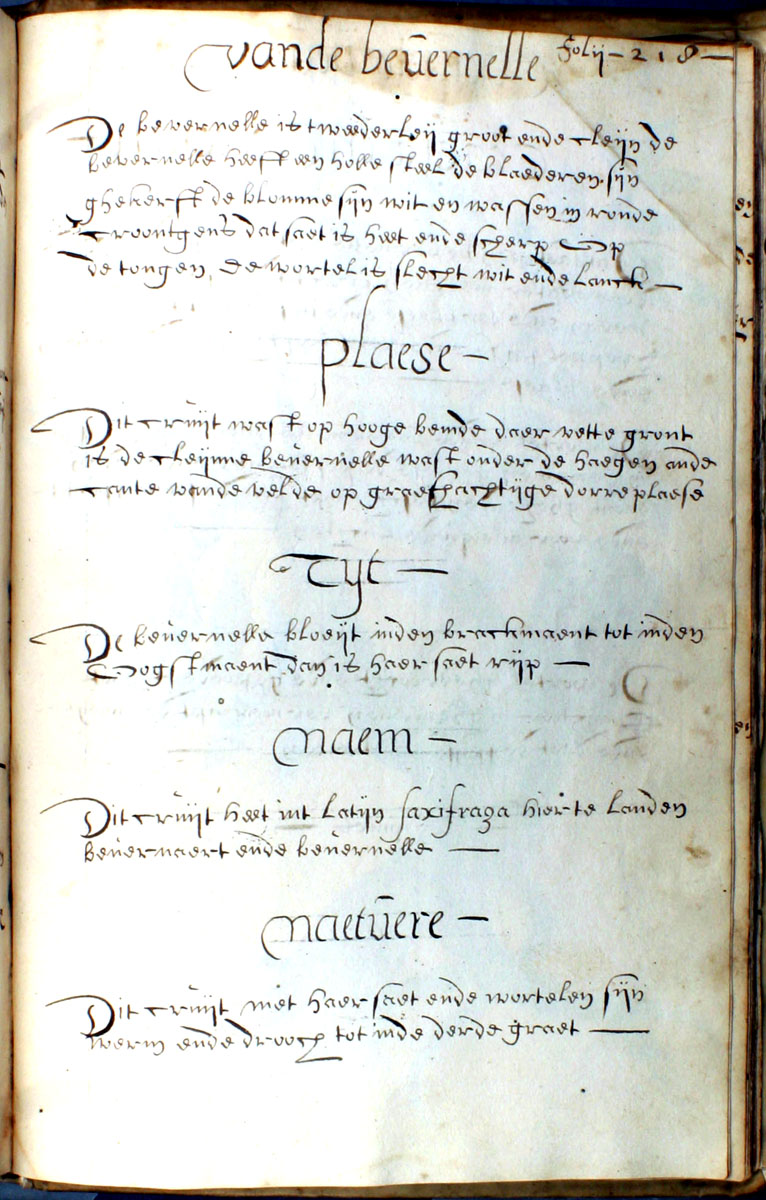 vande beūernelle folij - 218 -
De bevernelle is tweederleij groot ende cleijn de
bevernelle heeft een holle steel de blaederen sijn
ghekerft de blomme sijn wit en wassen in ronde
croontgens dat saet is heet ende scherp op
de tongen de wortel is slecht wit ende lanck -
plaese -
Dit cruijt wast op hooge bemde daer vette gront
is de cleijnne bevernelle wast onder de haegen ande
cante vande velde op graefhachtijge dorre plaese
Tijt -
De bevernelle bloeijt inden brackmaent tot inden
Oogstmaent dan is haer saet rijp -
naem -
Dit cruijt heet int latijn saxifraga hier te landen
bevernaert ende bevernelle -
naetūere -
Dit cruijt met haer saet ende wortelen sijn
werm ende drooch tot inde derde graet -